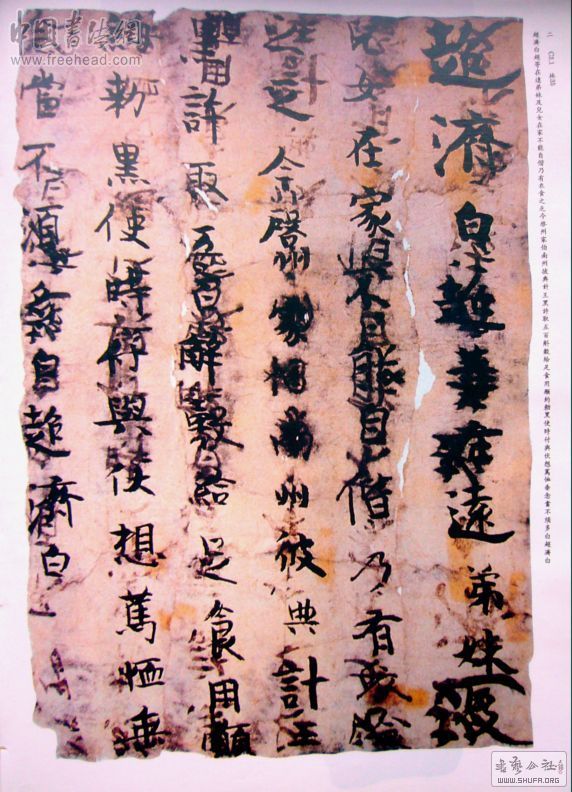 中国書法網
www.freehead.com
二
超濟白超等在遠弟妹及兒女在家不能自偕乃有衣食之乏今啓州家伯南州彼典計王黑許取五百斛穀給足食用願約勅黑使時付與伏想篤恤垂念當不須多白超濟白
超濟白超等在遠弟妹及
兒女在家不能自偕乃有衣食
之乏今啓州家伯南州彼典計王
黑許取五百斛穀給足食用願
約勅黑使時付與伏想篤恤垂
當不須多白超濟白
書藝公社
WWW.SHUFA.ORG